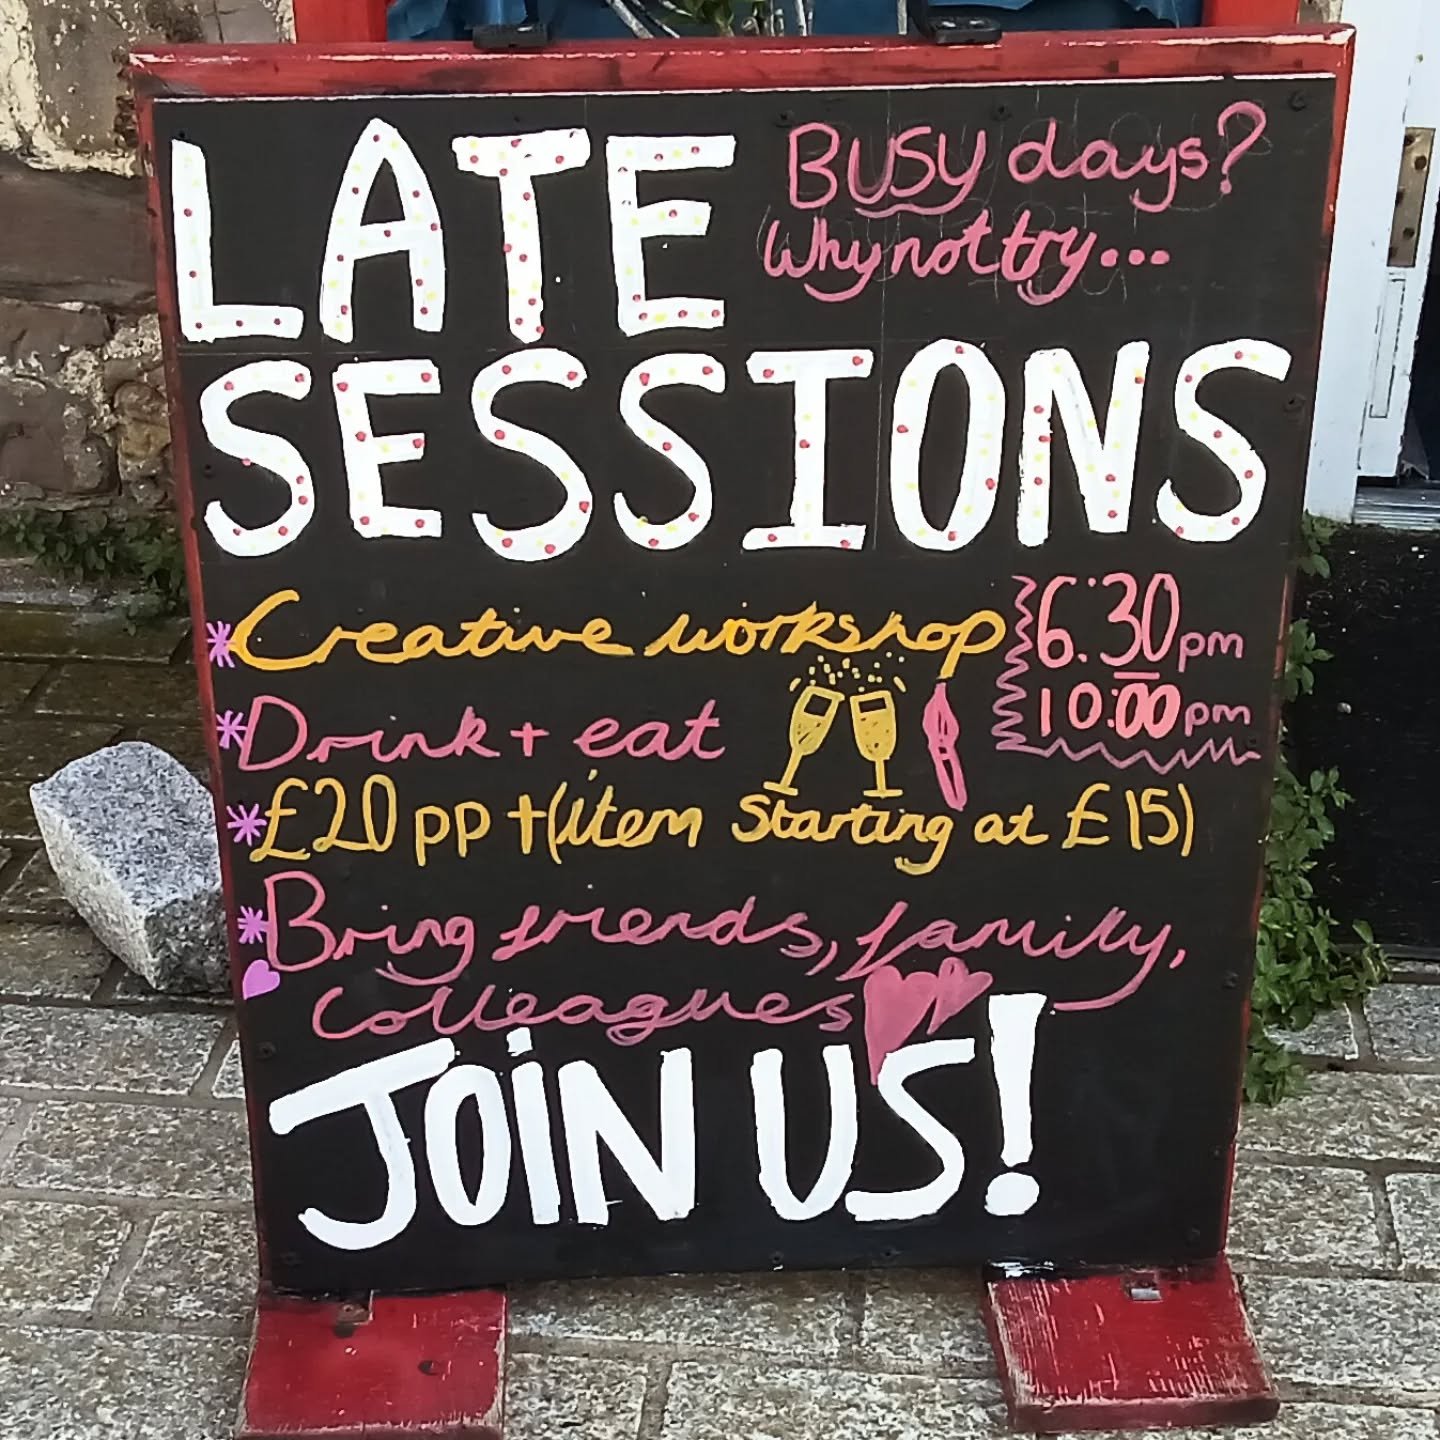 LATE
BUSY days?
Why not try...
SESSIONS
*Creative workshop
6:30pm
-
10:00pm
*Drink + eat
*£20 pp + (item starting at £15)
*Bring friends, family,
colleagues
JOiN US!